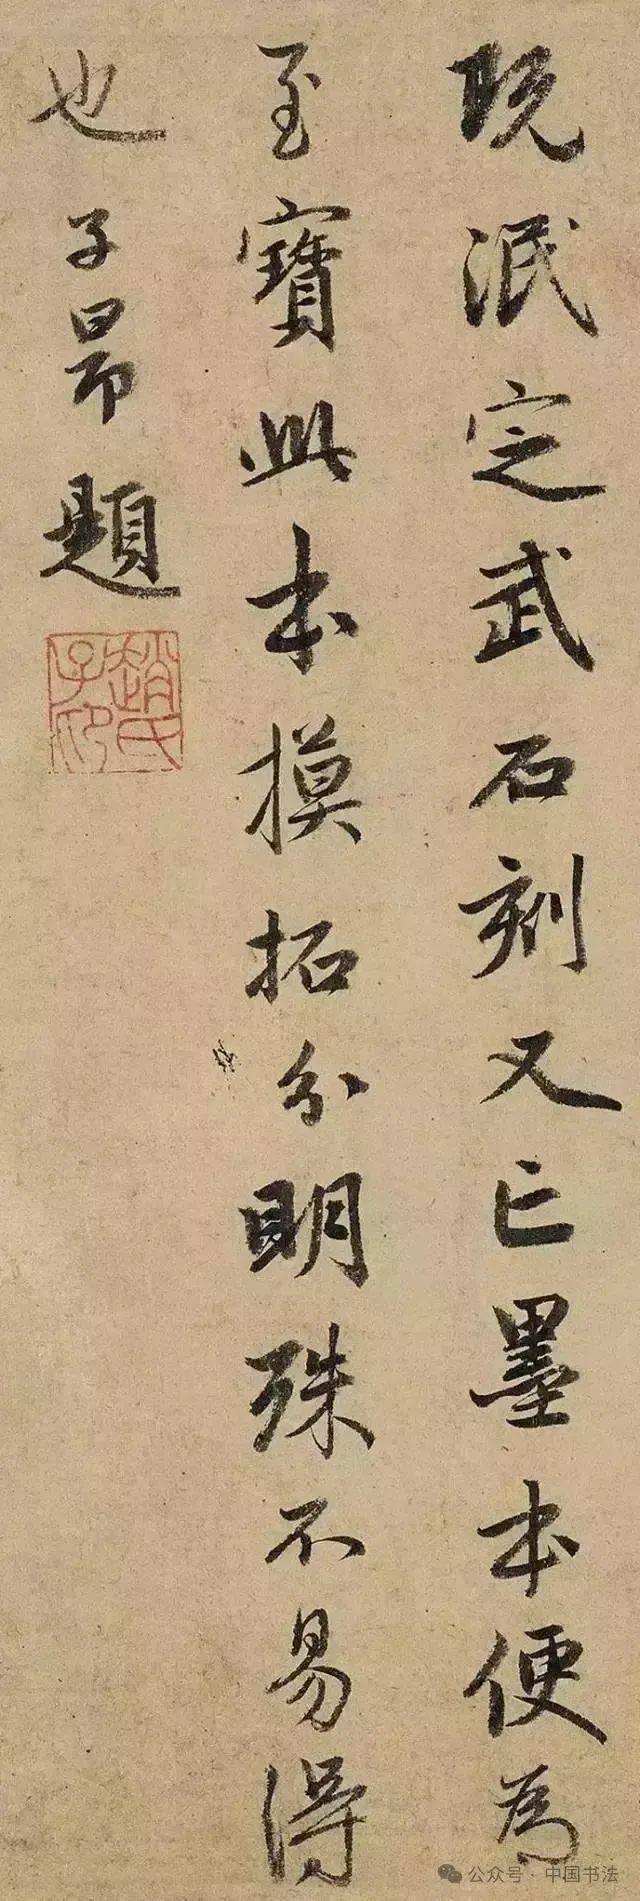 既泯定武石刻又亡墨本便為
至寶此本摸拓分明殊不易得
也子昂題
趙氏子昂
公众号·中国书法